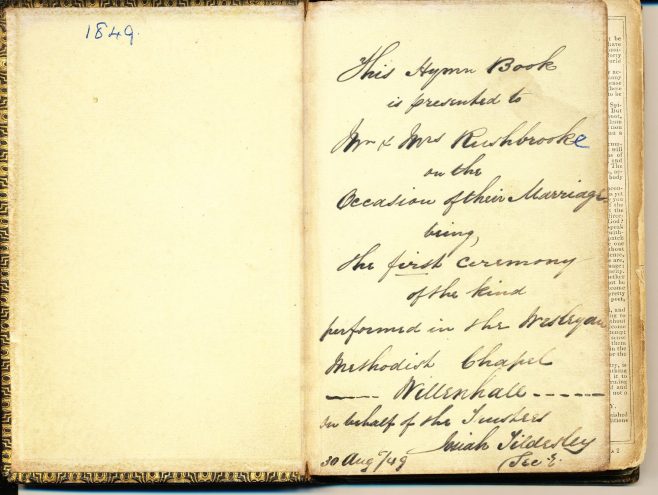 1849.
This Hymn Book
is presented to
Mr & Mrs Rushbrooke
on the
Occasion of their Marriage
being,
the first ceremony
of the kind
performed in the Wesleyan
Methodist Chapel
Willenhall
on behalf of the Trustees
Josiah Tildesley
30 Aug/49 (Secy.